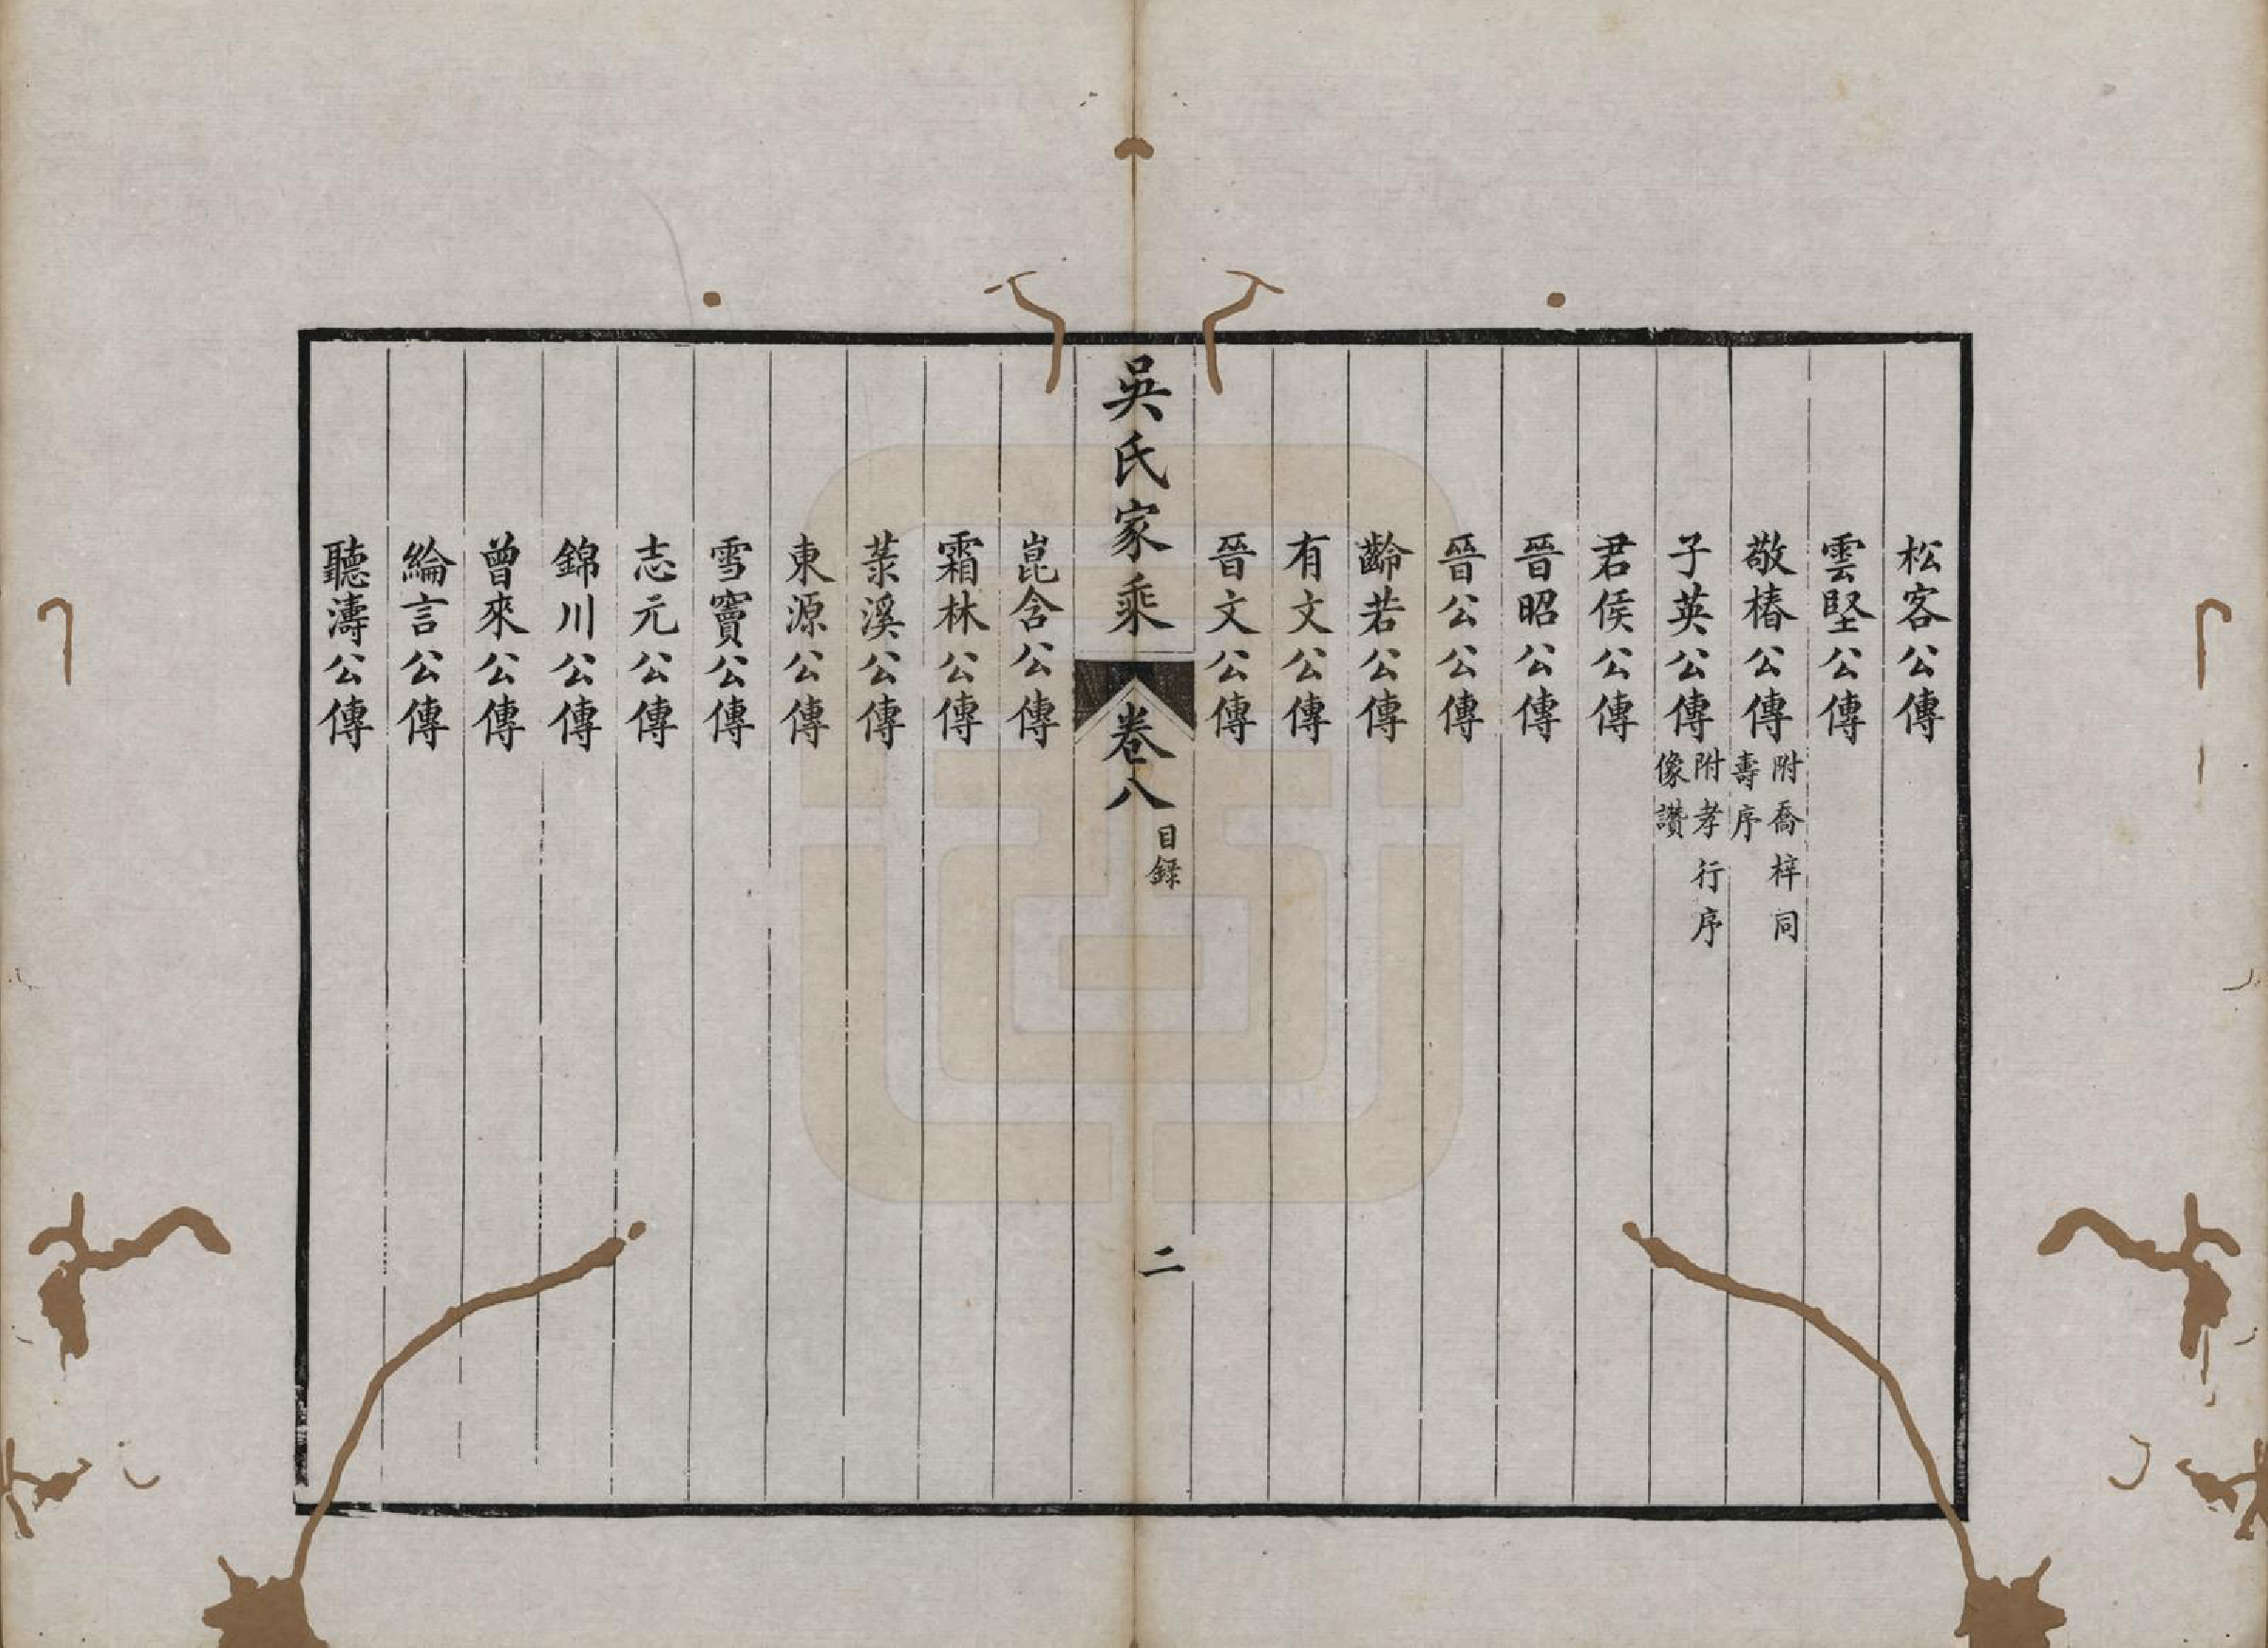 松客公傳
雲堅公傳
敬椿公傳 附喬梓同壽序
子英公傳 附孝行序像讚
君侯公傳
晉昭公傳
晉公公傳
齡若公傳
有文公傳
晉文公傳
吳氏家乘 卷八 目錄 二
崑含公傳
霜林公傳
菉溪公傳
東源公傳
雪竇公傳
志元公傳
錦川公傳
曾來公傳
綸言公傳
聽濤公傳